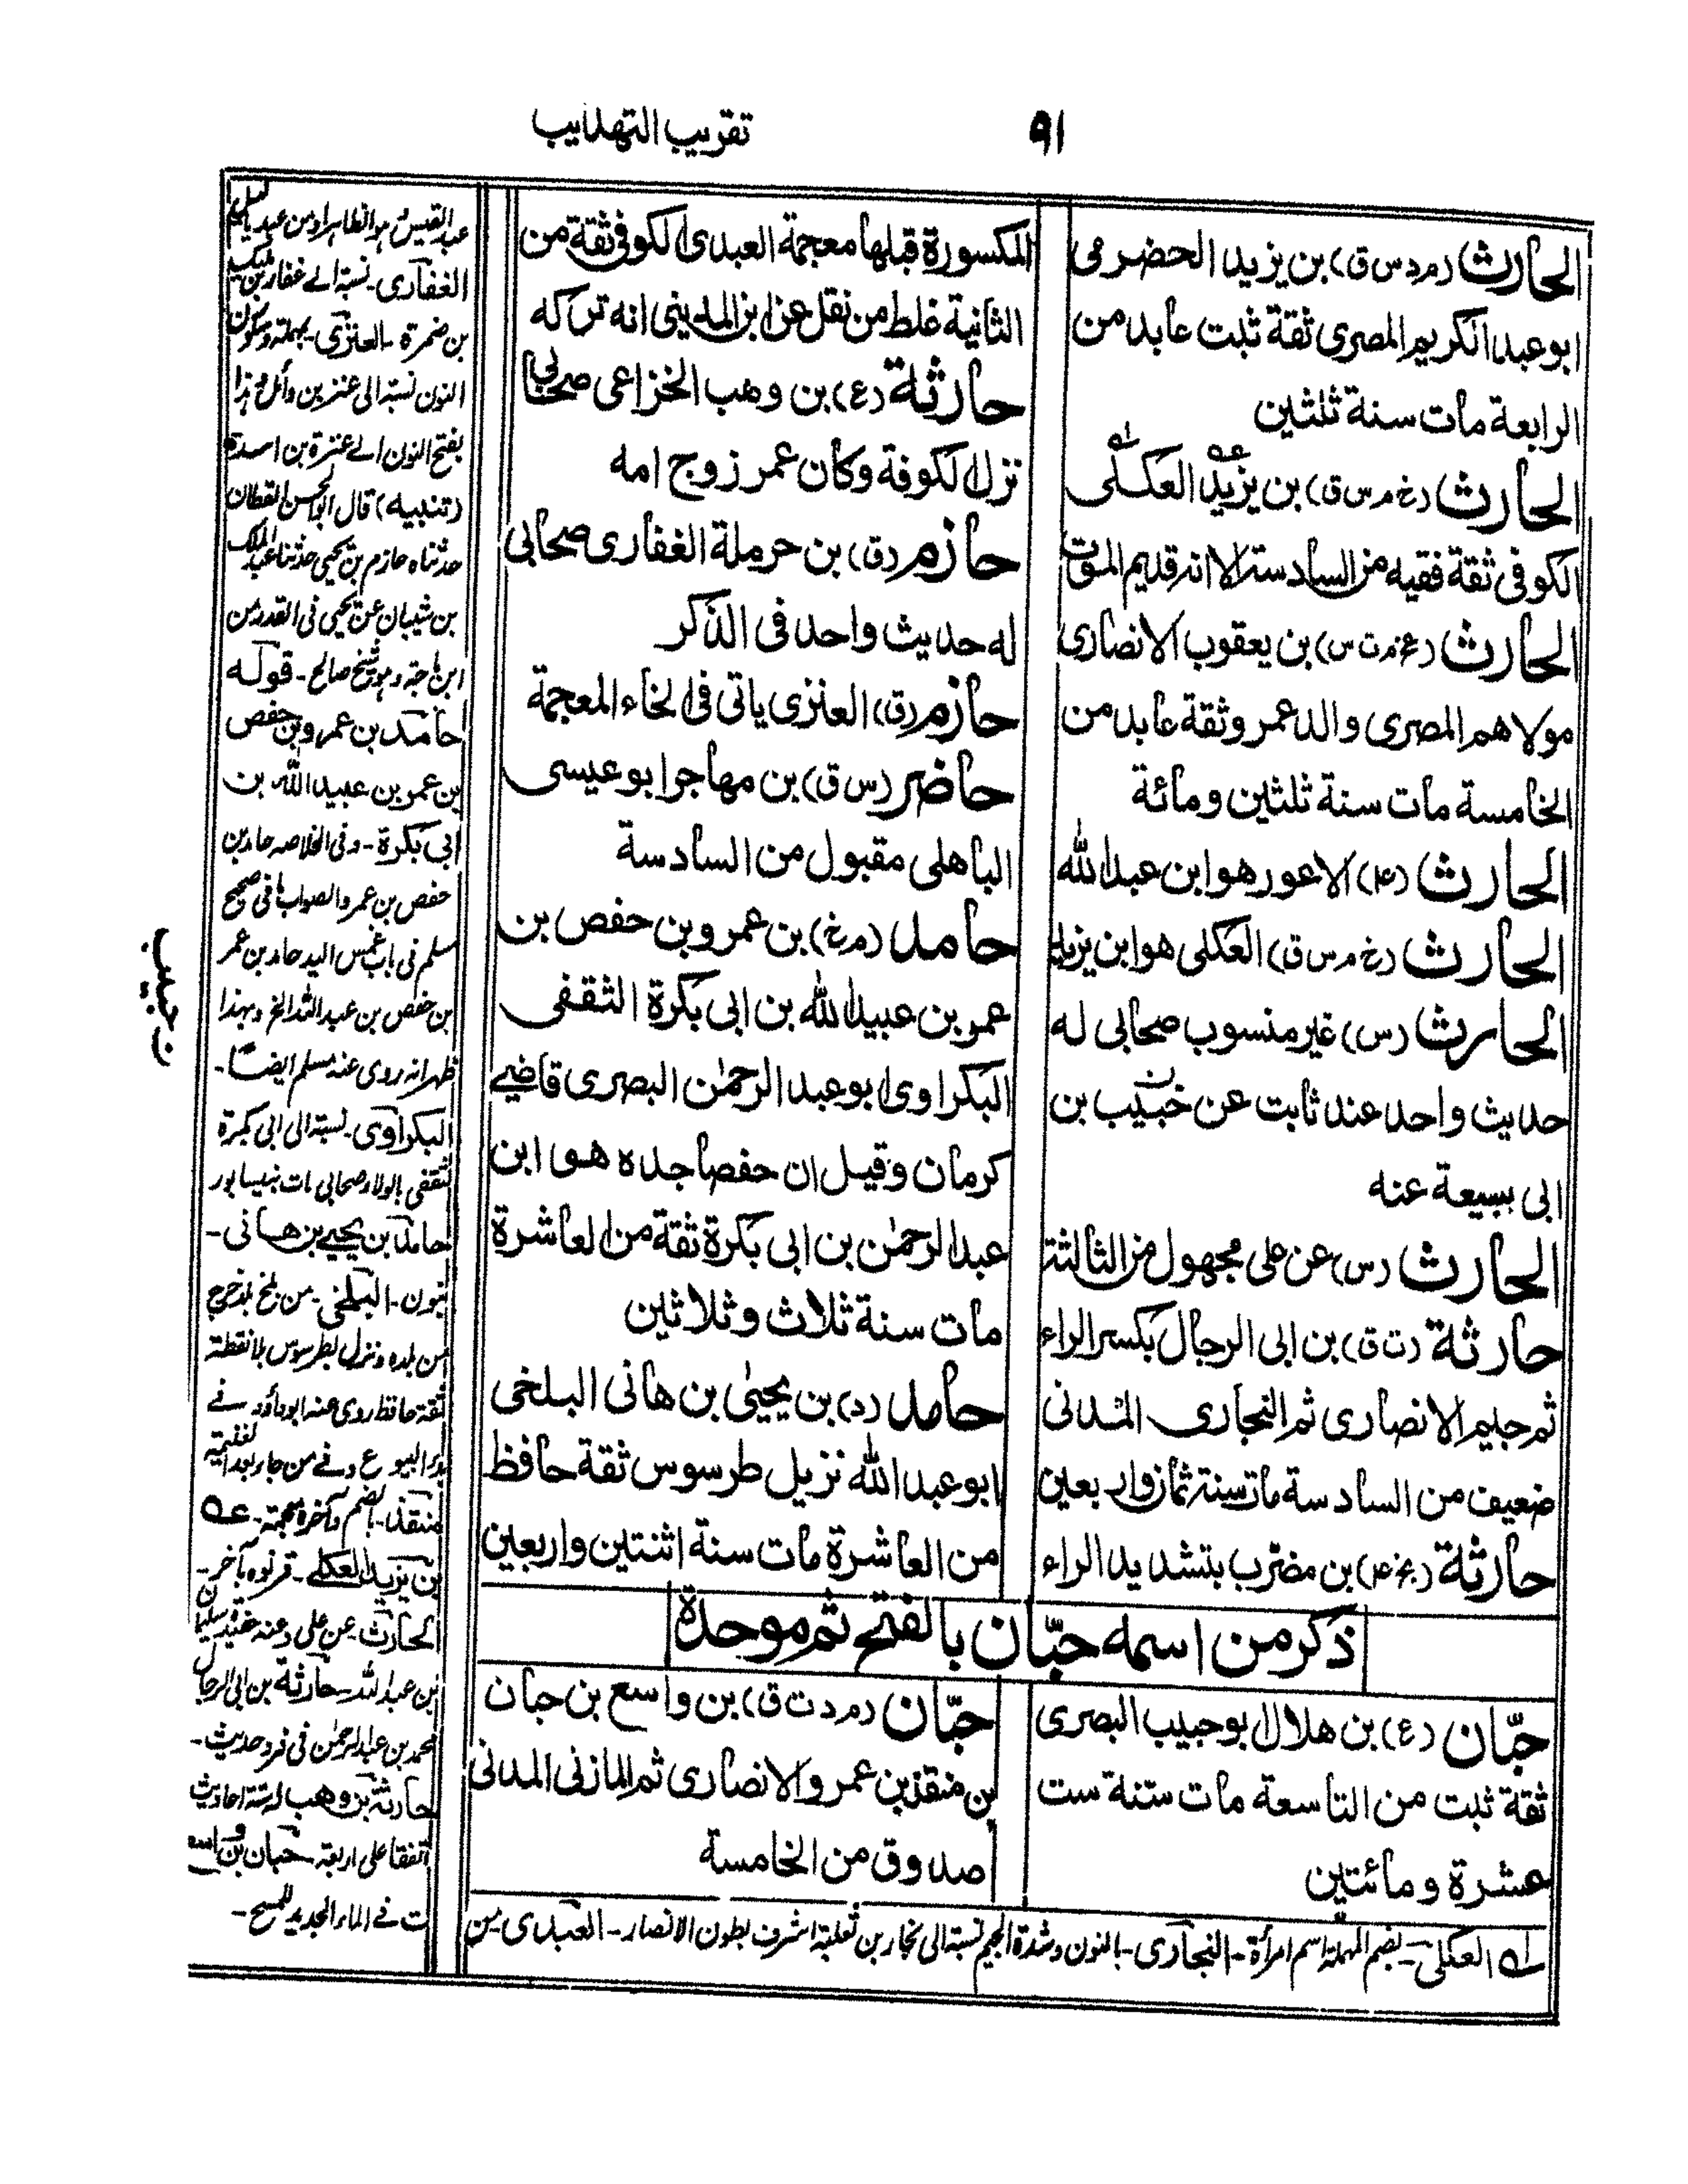 تقريب التهذيب
٩١
الحارث (م د س ق) بن يزيد الحضرمي
ابو عبد الكريم المصرى ثقة ثبت عابد من
الرابعة مات سنة ثلثين
الحارث (خ م س ق) بن يزيد العكلى
الكوفى ثقة فقيه من السادسة الا انه قديم الموت
الحارث (عخ م ت س) بن يعقوب الانصارى
مولاهم المصرى والد عمرو ثقة عابد من
الخامسة مات سنة ثلثين ومائة
الحارث (٤) الاعور هو ابن عبد الله
الحارث (خ م س ق) العكلى هو ابن يزيد
الحارث (س) غير منسوب صحابى له
حديث واحد عند ثابت عن خبيب بن
ابى سبيعة عنه
الحارث (س) عن على مجهول من الثالثة
حارثة (ت ق) بن ابى الرجال بكسر الراء
ثم جيم الانصارى ثم النجارى المدنى
ضعيف من السادسة مات سنة ثمان واربعين
حارثة (بخ ٤) بن مضرب بتشديد الراء
المكسورة قبلها معجمة العبدى الكوفى ثقة من
الثانية غلط من نقل عن ابن المدينى انه تركه
حارثة (ع) بن وهب الخزاعى صحابى
نزل الكوفة وكان عمر زوج امه
حازم (ق) بن حرملة الغفارى صحابى
له حديث واحد فى الذكر
حازم (ق) العنزى ياتى فى الخاء المعجمة
حاضر (س ق) بن مهاجر ابو عيسى
الباهلى مقبول من السادسة
حامد (م خ) بن عمرو بن حفص بن
عمر بن عبيد الله بن ابى بكرة الثقفى
البكراوى ابو عبد الرحمٰن البصرى قاضى
كرمان وقيل ان حفصا جده هو ابن
عبد الرحمٰن بن ابى بكرة ثقة من العاشرة
مات سنة ثلاث وثلاثين
حامد (د) بن يحيىٰ بن هانى البلخى
ابو عبد الله نزيل طرسوس ثقة حافظ
من العاشرة مات سنة اثنتين واربعين
ذكر من اسمه حبّان بالفتح ثم موحدة
حبّان (ع) بن هلال ابو حبيب البصرى
ثقة ثبت من التاسعة مات سنة ست
عشرة ومائتين
حبّان (م د ت ق) بن واسع بن حبان
بن منقذ بن عمرو الانصارى ثم المازنى المدنى
صدوق من الخامسة
عبد القيس هو الظاهر او من عبد
الغفارى - نسبة الے غفار بن مليك
بن ضمرة - العنزى - بمهملة وسكون
النون نسبة الى عنز بن وائل و هذا
بفتح النون الے عنزة بن اسد
(تنبيه) قال ابو الحسن القطان
حدثناه حازم بن يحيى حدثنا عبد الملك
بن شيبان عن يحيى فى القدر من
ابن ماجة وهو شيخ صالح - قوله
حامد بن عمرو بن حفص
بن عمر بن عبيد الله بن
ابى بكرة - وفى الخلاصه حامد بن
حفص بن عمر والصواب ما فى صحيح
مسلم فى باب غمس اليد حامد بن عمر
بن حفص بن عبيد الله الخ وبهذا
ظهر انه روى عنه مسلم ايضًا -
البكراوى - نسبة الى ابى بكرة
ثقفى بالولاء صحابى مات
حامد بن يحيے بن هانى -
بنون - البلخى - من بلخ بلد خرج
من بلده ونزل بطرسوس بلا نقطة
ثقة حافظ روى عنه ابو داؤد فے
منقذ - بضم وآخره معجمة - عــه
بن يزيد العكلے - قرنوه بآخر -
الحارث - عن على وعنه سليمان
بن عبد الله - حارثة بن ابى الرجال
محمد بن عبد الرحمٰن فى فرد حديث -
حارثة بن وهب له ستة احاديث
اتفقا على اربعة - حبان بن واسع
فے الماء الجديد للمسح -
له العكلى - بضم المهملة اسم امرأة - النجارى - بالنون وشدة الجيم نسبة الى نجار بن ثعلبة اشرف بطون الانصار - العبدى - من
ن حبيب